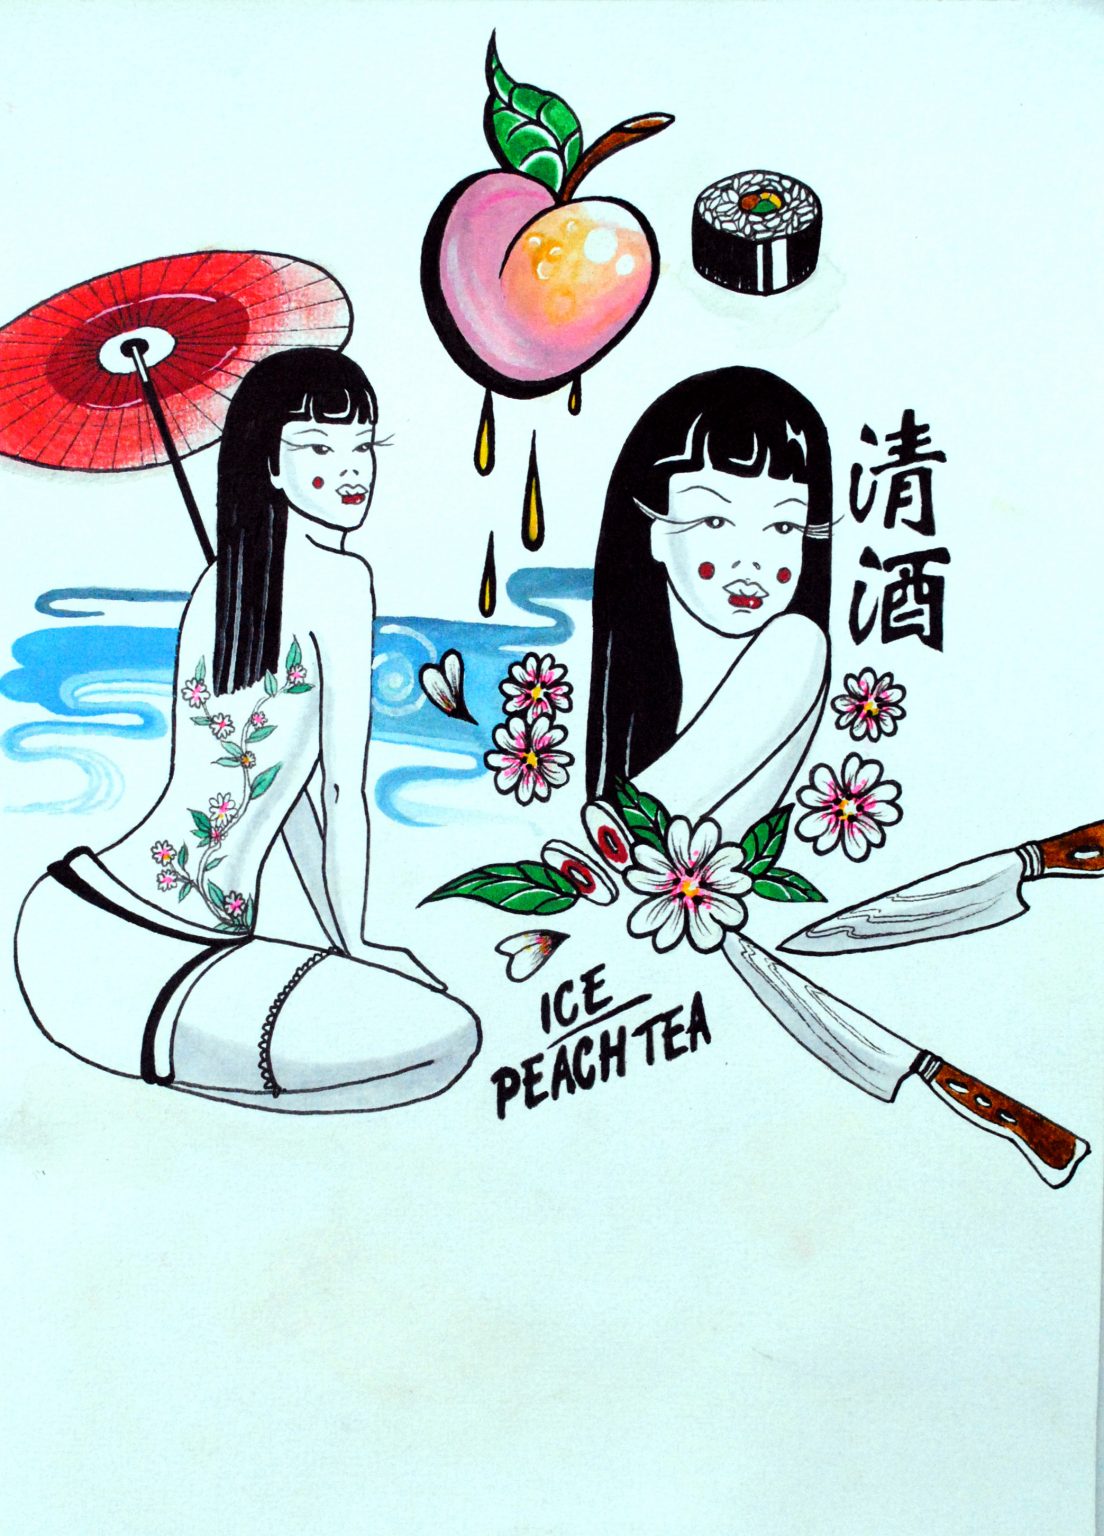 清酒
ICE
PEACH TEA